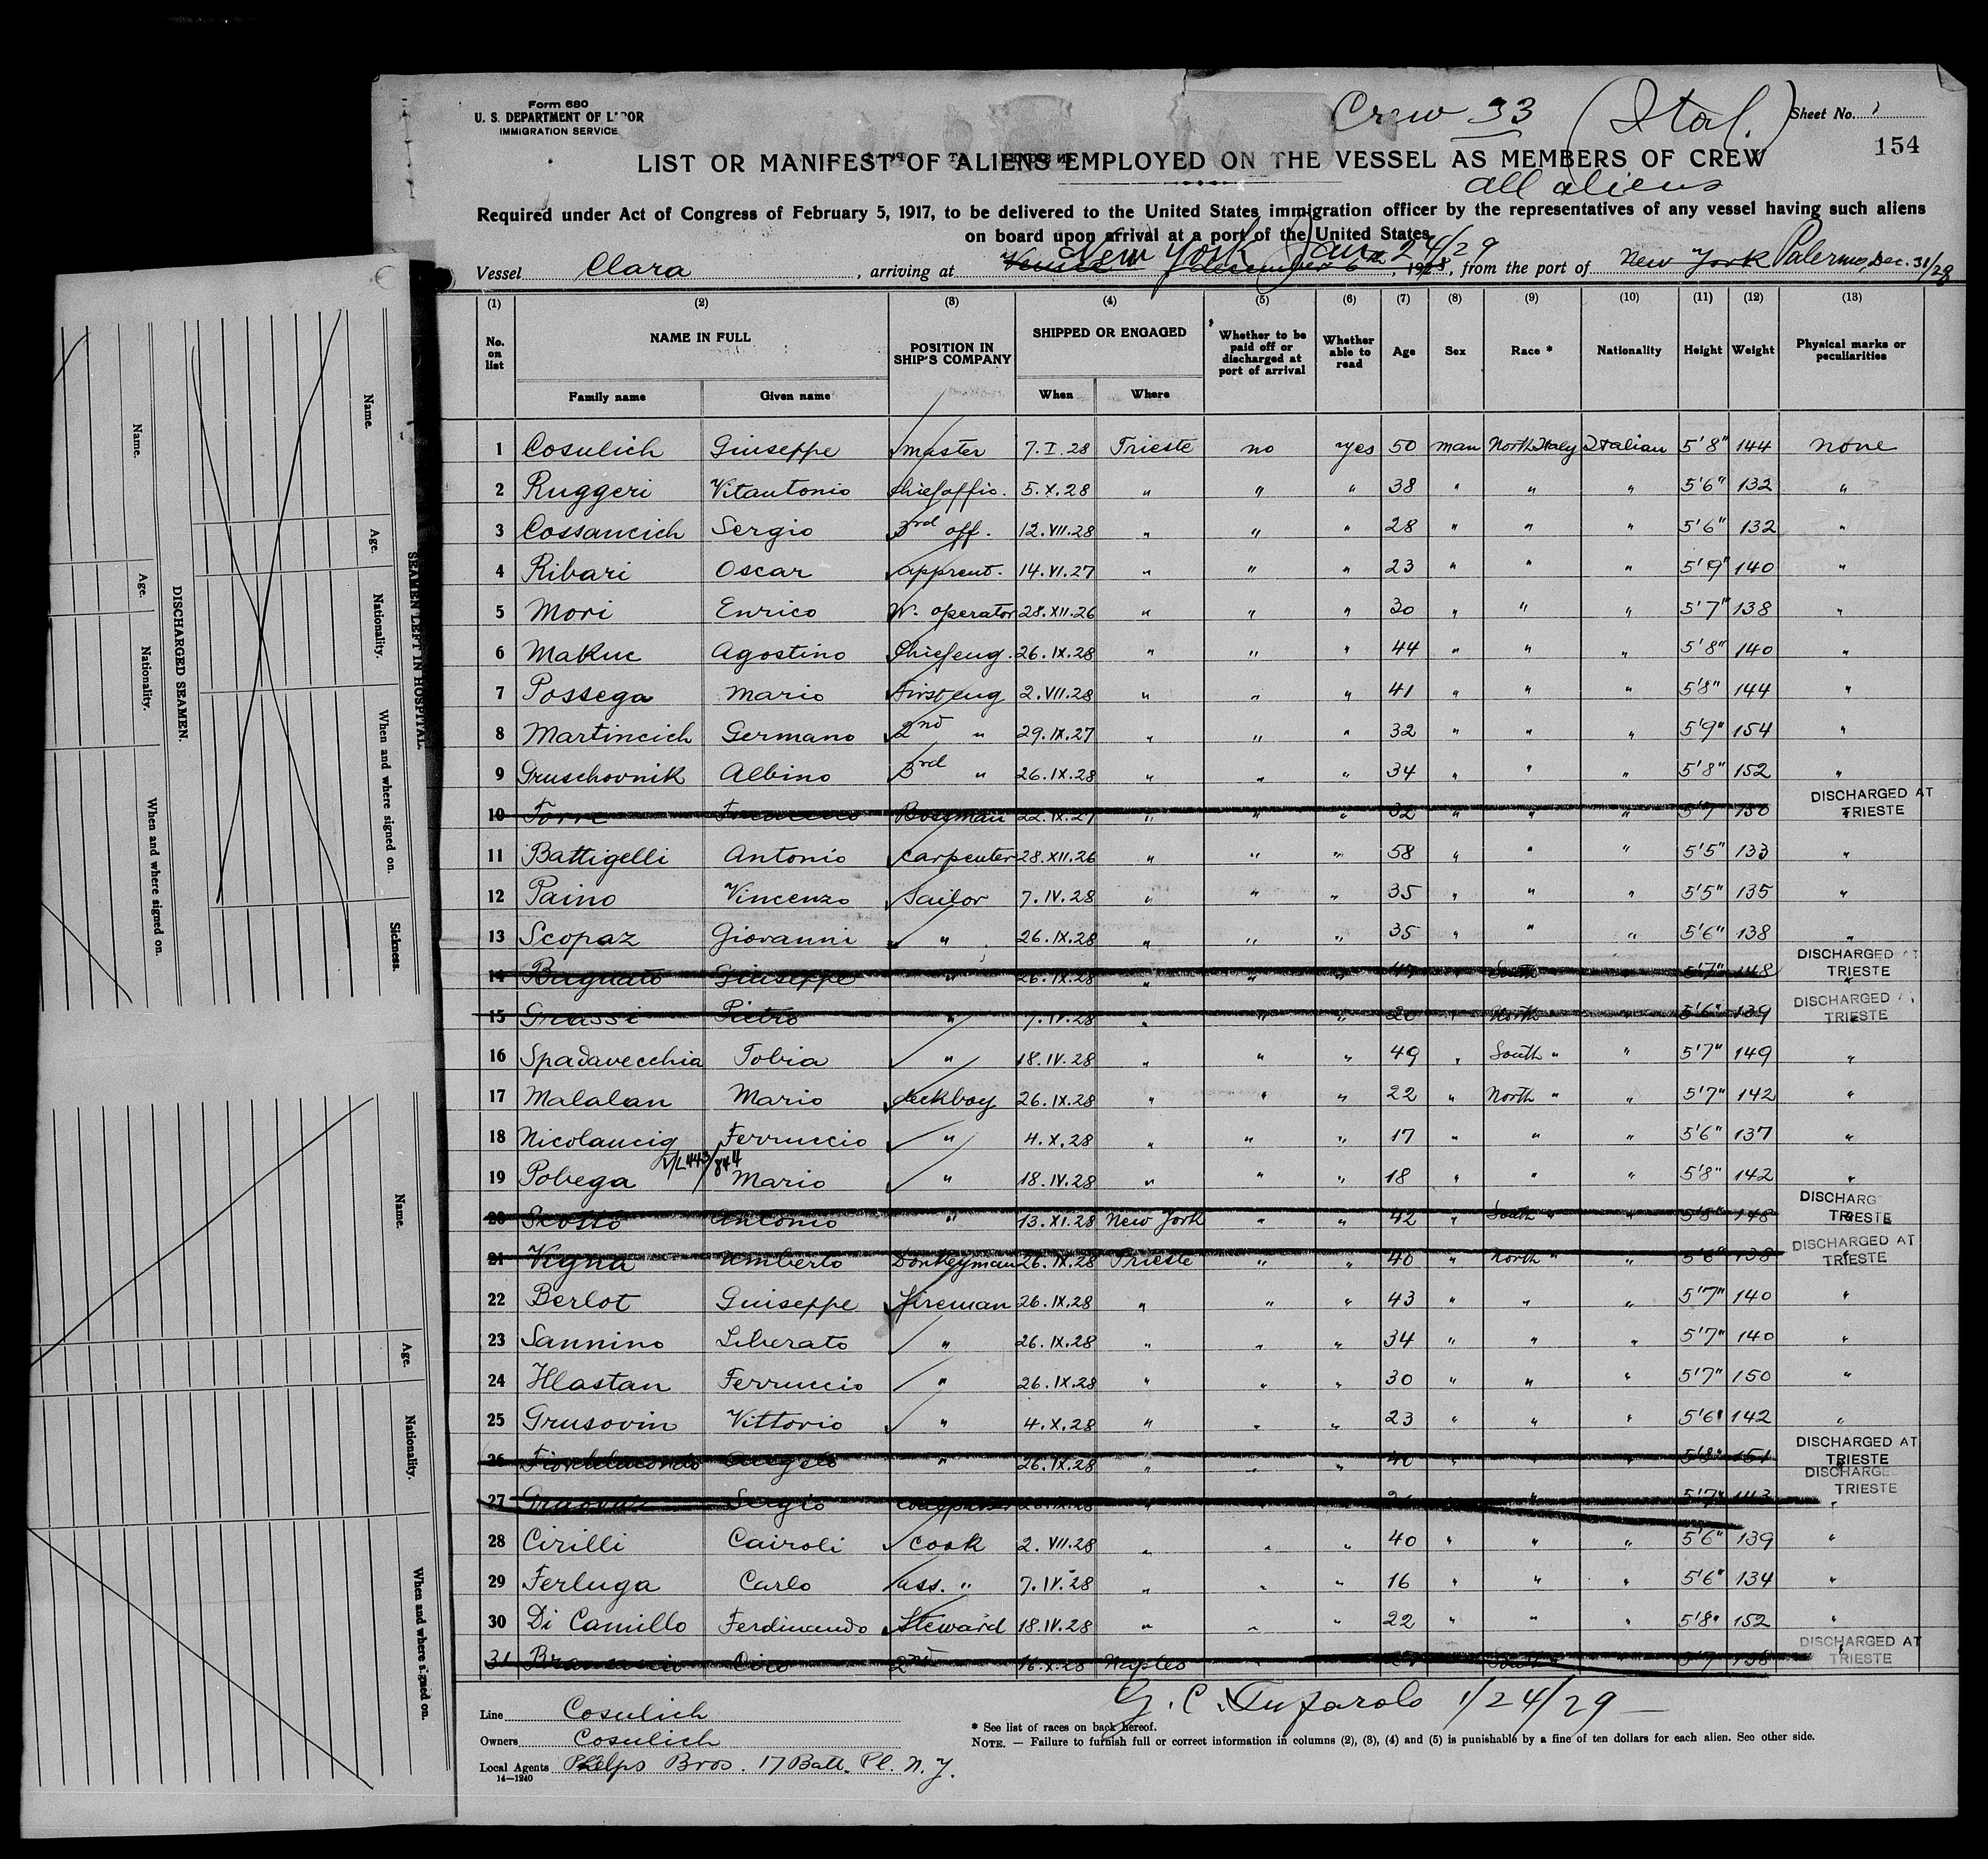 Form 680
U. S. DEPARTMENT OF LABOR
IMMIGRATION SERVICE
Crew 33 (Ital.)
Sheet No. 1
154
LIST OR MANIFEST OF ALIENS EMPLOYED ON THE VESSEL AS MEMBERS OF CREW
all aliens
Required under Act of Congress of February 5, 1917, to be delivered to the United States immigration officer by the representatives of any vessel having such aliens
on board upon arrival at a port of the United States
New York Jan. 24/29
Vessel Clara, arriving at Venice December 6, 1928, from the port of New York Palermo, Dec. 31/28
(1) (2) (3) (4) (5) (6) (7) (8) (9) (10) (11) (12) (13)
No. on list
NAME IN FULL
Family name Given name
POSITION IN SHIP'S COMPANY
SHIPPED OR ENGAGED
When Where
Whether to be paid off or discharged at port of arrival
Whether able to read
Age
Sex
Race *
Nationality
Height
Weight
Physical marks or peculiarities
1 Cosulich Giuseppe master 7.I.28 Trieste no yes 50 man North Italy Italian 5'8" 144 none
2 Ruggeri Vitantonio Chief offic. 5.X.28 " " " 38 " " " 5'6" 132 "
3 Cossancich Sergio 3rd off. 12.VII.28 " " " 28 " " " 5'6" 132 "
4 Ribari Oscar apprent. 14.VI.27 " " " 23 " " " 5'9" 140 "
5 Mori Enrico W. operator 28.XII.26 " " " 30 " " " 5'7" 138 "
6 Makuc Agostino Chief eng. 26.IX.28 " " " 44 " " " 5'8" 140 "
7 Possega Mario First eng 2.VII.28 " " " 41 " " " 5'8" 144 "
8 Martincich Germano 2nd " 29.IX.27 " " " 32 " " " 5'9" 154 "
9 Gruschovnik Albino 3rd " 26.IX.28 " " " 34 " " " 5'8" 152 "
10 Torre Francesco Bosman 22.IX.27 " " " 32 " " " 5'7 150 " DISCHARGED AT TRIESTE
11 Battigelli Antonio Carpenter 28.XII.26 " " " 58 " " " 5'5" 133 "
12 Paino Vincenzo Sailor 7.IV.28 " " " 35 " " " 5'5" 135 "
13 Scopaz Giovanni " 26.IX.28 " " " 35 " " " 5'6" 138 "
14 Bagnato Giuseppe " 26.IX.28 " " " 47 " South " 5'7" 148 " DISCHARGED AT TRIESTE
15 Grassi Pietro " 7.IV.28 " " " 20 " North " 5'6" 139 " DISCHARGED A TRIESTE
16 Spadavecchia Tobia " 18.IV.28 " " " 49 " South " " 5'7" 149 "
17 Malalan Mario deckboy 26.IX.28 " " " 22 " North " " 5'7" 142 "
18 Nicolaucig Ferruccio " 4.X.28 " " " 17 " " " 5'6" 137 "
V/L 443/844
19 Pobega Mario " 18.IV.28 " " " 18 " " " 5'8" 142 "
20 Scotto Antonio " 13.XI.28 New York " " 42 " South " " 5'8" 148 " DISCHARG TRIESTE
21 Vigna Umberto Donkeyman 26.IX.28 Trieste " " 40 " North " " 5'6" 138 " DISCHARGED AT TRIESTE
22 Berlot Giuseppe fireman 26.IX.28 " " " 43 " " " 5'7" 140 "
23 Sannino Liberato " 26.IX.28 " " " 34 " " " 5'7" 140 "
24 Hlastan Ferruccio " 26.IX.28 " " " 30 " " " 5'7" 150 "
25 Grusovin Vittorio " 4.X.28 " " " 23 " " " 5'6" 142 "
26 Angelo " 26.IX.28 " " " 40 " " " 5'8" 151 " DISCHARGED AT TRIESTE
27 Sergio 26.IX.28 " " " " " 5'7" 143 " DISCHARGED TRIESTE
28 Cirilli Cairoli cook 2.VII.28 " " " 40 " " " 5'6" 139 "
29 Ferluga Carlo ass. " 7.IV.28 " " " 16 " " " 5'6" 134 "
30 Di Camillo Ferdinando Steward 18.IV.28 " " " 22 " " " 5'8" 152 "
31 Ciro 2nd " 16.X.28 Naples " South " 5'7 138 DISCHARGED AT TRIESTE
Line Cosulich
Owners Cosulich
Local Agents Phelps Bros. 17 Batt. Pl. N. Y.
14—1240
G. C. 1/24/29
* See list of races on back hereof.
NOTE. — Failure to furnish full or correct information in columns (2), (3), (4) and (5) is punishable by a fine of ten dollars for each alien. See other side.
SEAMEN LEFT IN HOSPITAL.
Name. Age. Nationality. When and where signed on. Sickness.
DISCHARGED SEAMEN.
Name. Age. Nationality. When and where signed on.
Name. Age. Nationality. When and where signed on.